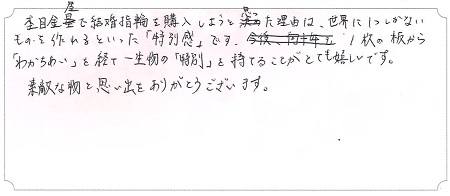 杢目金屋で結婚指輪を購入しようと思った理由は、世界に1つしかない
ものを作れるといった「特別感」です。1枚の板から
「わかちあい」を経て一生物の「特別」を持てることがとても嬉しいです。
素敵な物と思い出をありがとうございます。